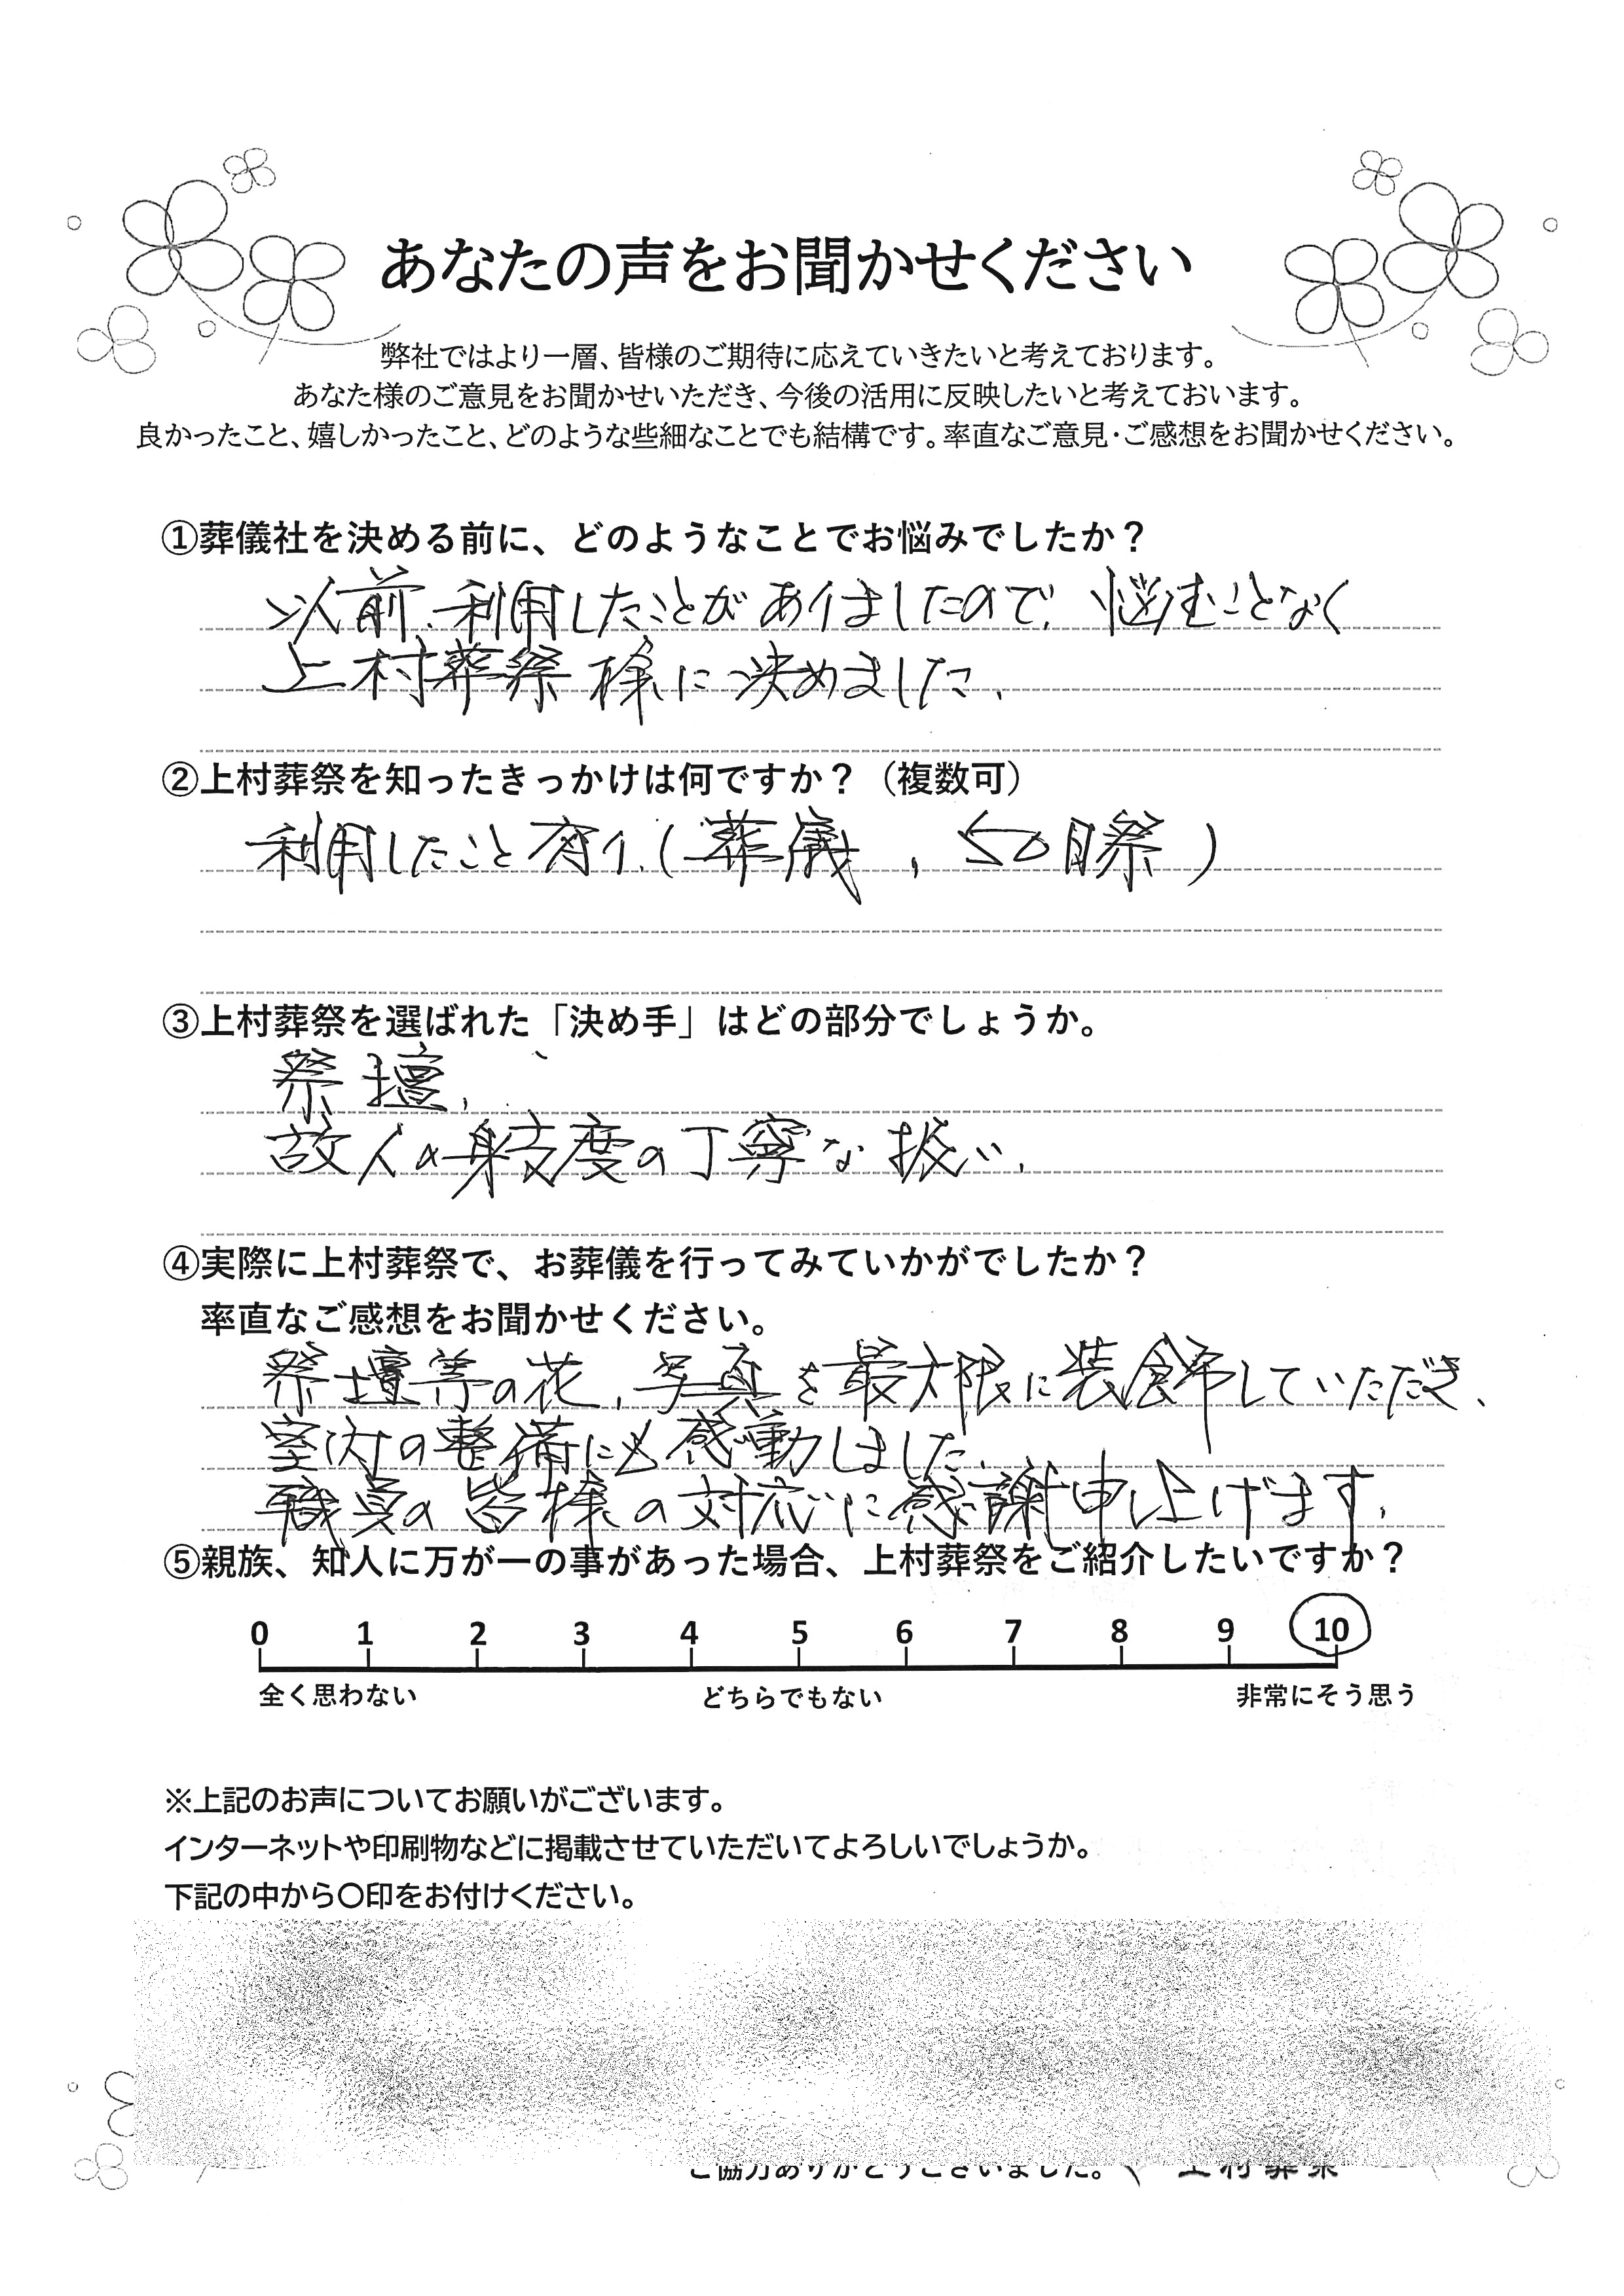 あなたの声をお聞かせください
弊社ではより一層、皆様のご期待に応えていきたいと考えております。
あなた様のご意見をお聞かせいただき、今後の活用に反映したいと考えておいます。
良かったこと、嬉しかったこと、どのような些細なことでも結構です。率直なご意見・ご感想をお聞かせください。
①葬儀社を決める前に、どのようなことでお悩みでしたか？
以前、利用したことがありましたので、悩むことなく
上村葬祭様に決めました、
②上村葬祭を知ったきっかけは何ですか？（複数可）
利用したこと有り、(葬儀、50日祭)
③上村葬祭を選ばれた「決め手」はどの部分でしょうか。
祭壇、
故人の身支度の丁寧な扱い、
④実際に上村葬祭で、お葬儀を行ってみていかがでしたか？
率直なご感想をお聞かせください。
祭壇等の花、写真を最大限に装飾していただき、
室内の整備にも感動しました、
職員の皆様の対応に感謝申し上げます、
⑤親族、知人に万が一の事があった場合、上村葬祭をご紹介したいですか？
0 1 2 3 4 5 6 7 8 9 10
全く思わない どちらでもない 非常にそう思う
※上記のお声についてお願いがございます。
インターネットや印刷物などに掲載させていただいてよろしいでしょうか。
下記の中から〇印をお付けください。
ご協力ありがとうございました。 上村葬祭